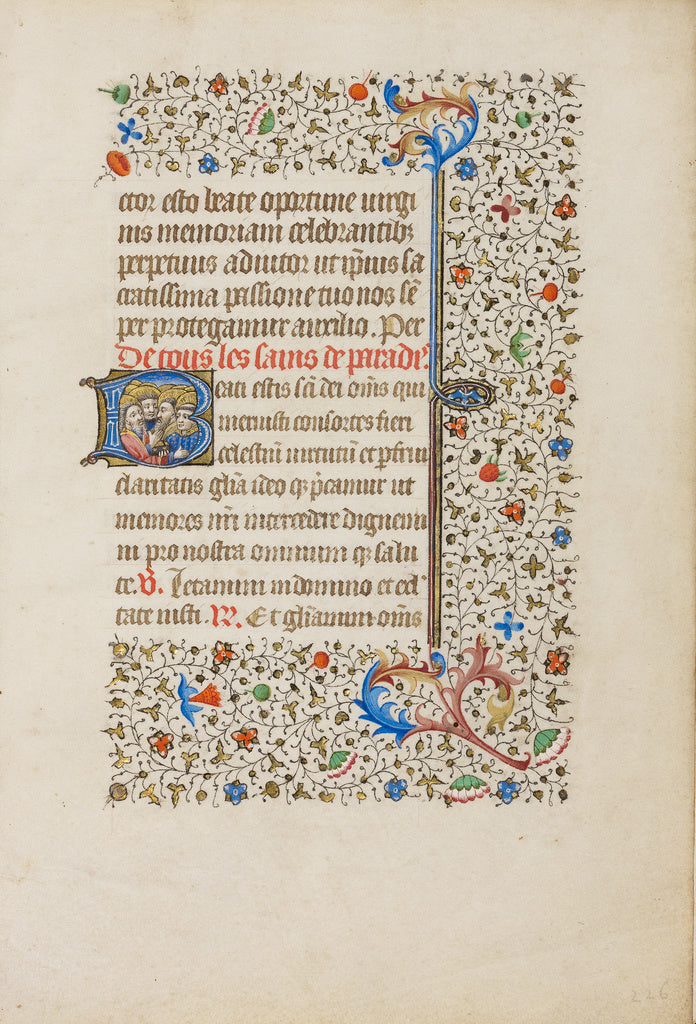 ctor esto beate oportune uirgi
nis memoriam celebrantibꝫ
perpetuus adiutor ut ip̃ius sa
cratissima passione tuo nos sẽ
per protegamur auxilio. Per
De tous les sains de paradis.
Beati estis sc̃i dei om̃s qui
meruisti consortes fieri
celestiũ uirtutũ et ꝑfrui
claritatis gl̃ia ideo qꝫ p̃camur ut
memores nr̃i intercedere dignemi
ni pro nostra omnium qꝫ salu
te. V̄. Letamini in domino et ex̾
tate iusti. R̄. Et gl̃iamini om̃s
226